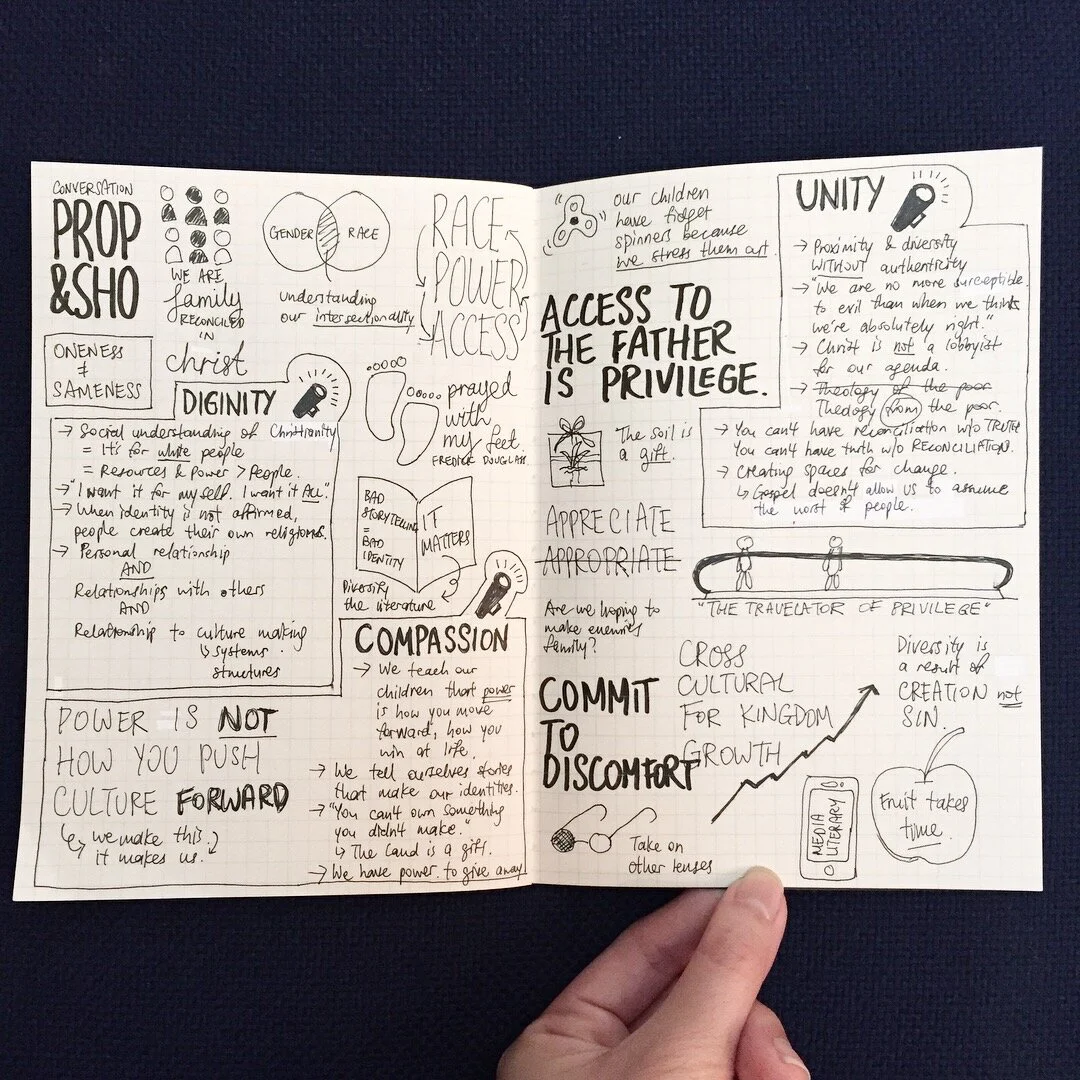 CONVERSATION
PROP
&SHO
WE ARE
family
RECONCILED
IN
christ
GENDER
RACE
understanding
our intersectionality
RACE
POWER
ACCESS
ONENESS
≠
SAMENESS
DIGINITY
→ Social understanding of Christianity
= It's for white people
= Resources & Power > People.
→ "I want it for myself. I want it ALL".
→ When identity is not affirmed,
people create their own religions.
→ Personal relationship
AND
Relationships with others
AND
Relationship to culture making
↳ systems.
structures
prayed
with
my feet.
FREDRICK DOUGLASS.
BAD
STORYTELLING
=
BAD
IDENTITY
IT
MATTERS
Diversify
the literature
COMPASSION
→ We teach our
children that power
is how you move
forward, how you
win at life.
→ We tell ourselves stories
that make our identities.
→ "You can't own something
you didn't make."
↳ The land is a gift.
→ We have power. to give away
POWER IS NOT
HOW YOU PUSH
CULTURE FORWARD
↳ we make this.
it makes us.
our children
have fidget
spinners because
we stress them out.
ACCESS TO
THE FATHER
IS PRIVILEGE.
The soil is
a gift.
APPRECIATE
APPROPRIATE
Are we hoping to
make enemies
family?
COMMIT
TO
DISCOMFORT
Take on
other lenses
UNITY
→ Proximity & diversity
WITHOUT authenticity
→ "We are no more susceptible
to evil than when we think
we're absolutely right."
→ Christ is not a lobbyist
for our agenda.
→ Theology of the poor
Theology from the poor.
→ You can't have reconciliation w/o TRUTH
You can't have truth w/o RECONCILIATION.
→ Creating spaces for change.
↳ Gospel doesn't allow us to assume
the worst of people.
"THE TRAVELATOR OF PRIVILEGE"
CROSS
CULTURAL
FOR KINGDOM
GROWTH
Diversity is
a result of
CREATION not
SIN.
MEDIA
LITERARY
Fruit takes
time.